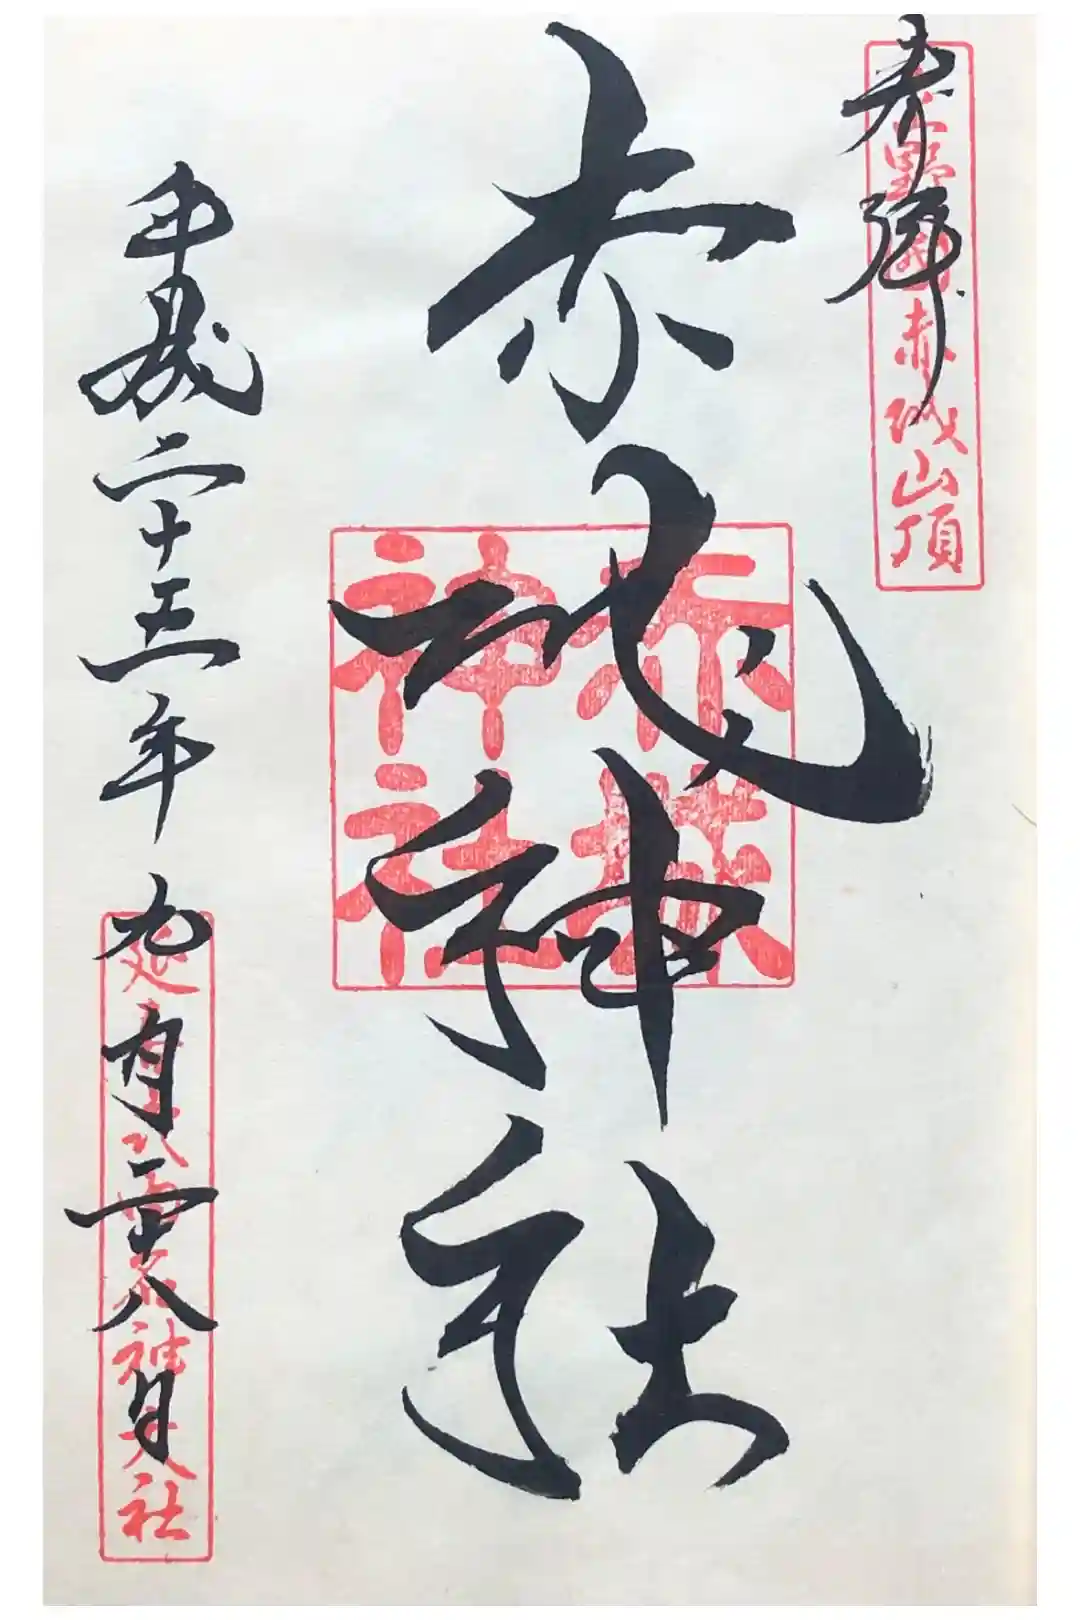 奉拝
上野国赤城山頂
赤城神社
赤城
神社
平成二十五年九月二十八日
延喜式内名神大社